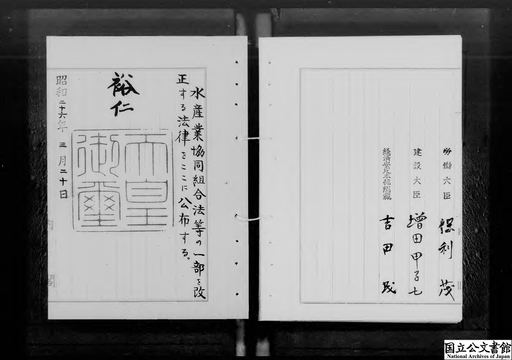 労働大臣 保利茂
建設大臣 増田甲子七
経済安定本部総裁 吉田茂
水産業協同組合法等の一部を改
正する法律をここに公布する。
裕仁
天皇
御璽
昭和二十六年三月二十日
国立公文書館
National Archives of Japan